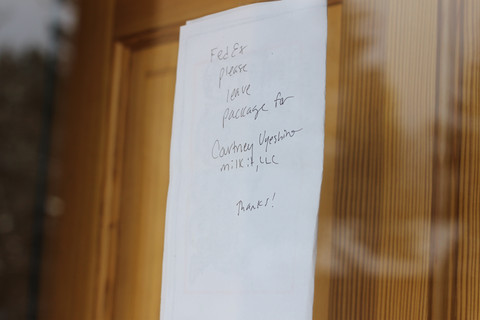 FedEx
please
leave
package for
Courtney Uyeshiro
milkit, LLC
Thanks!